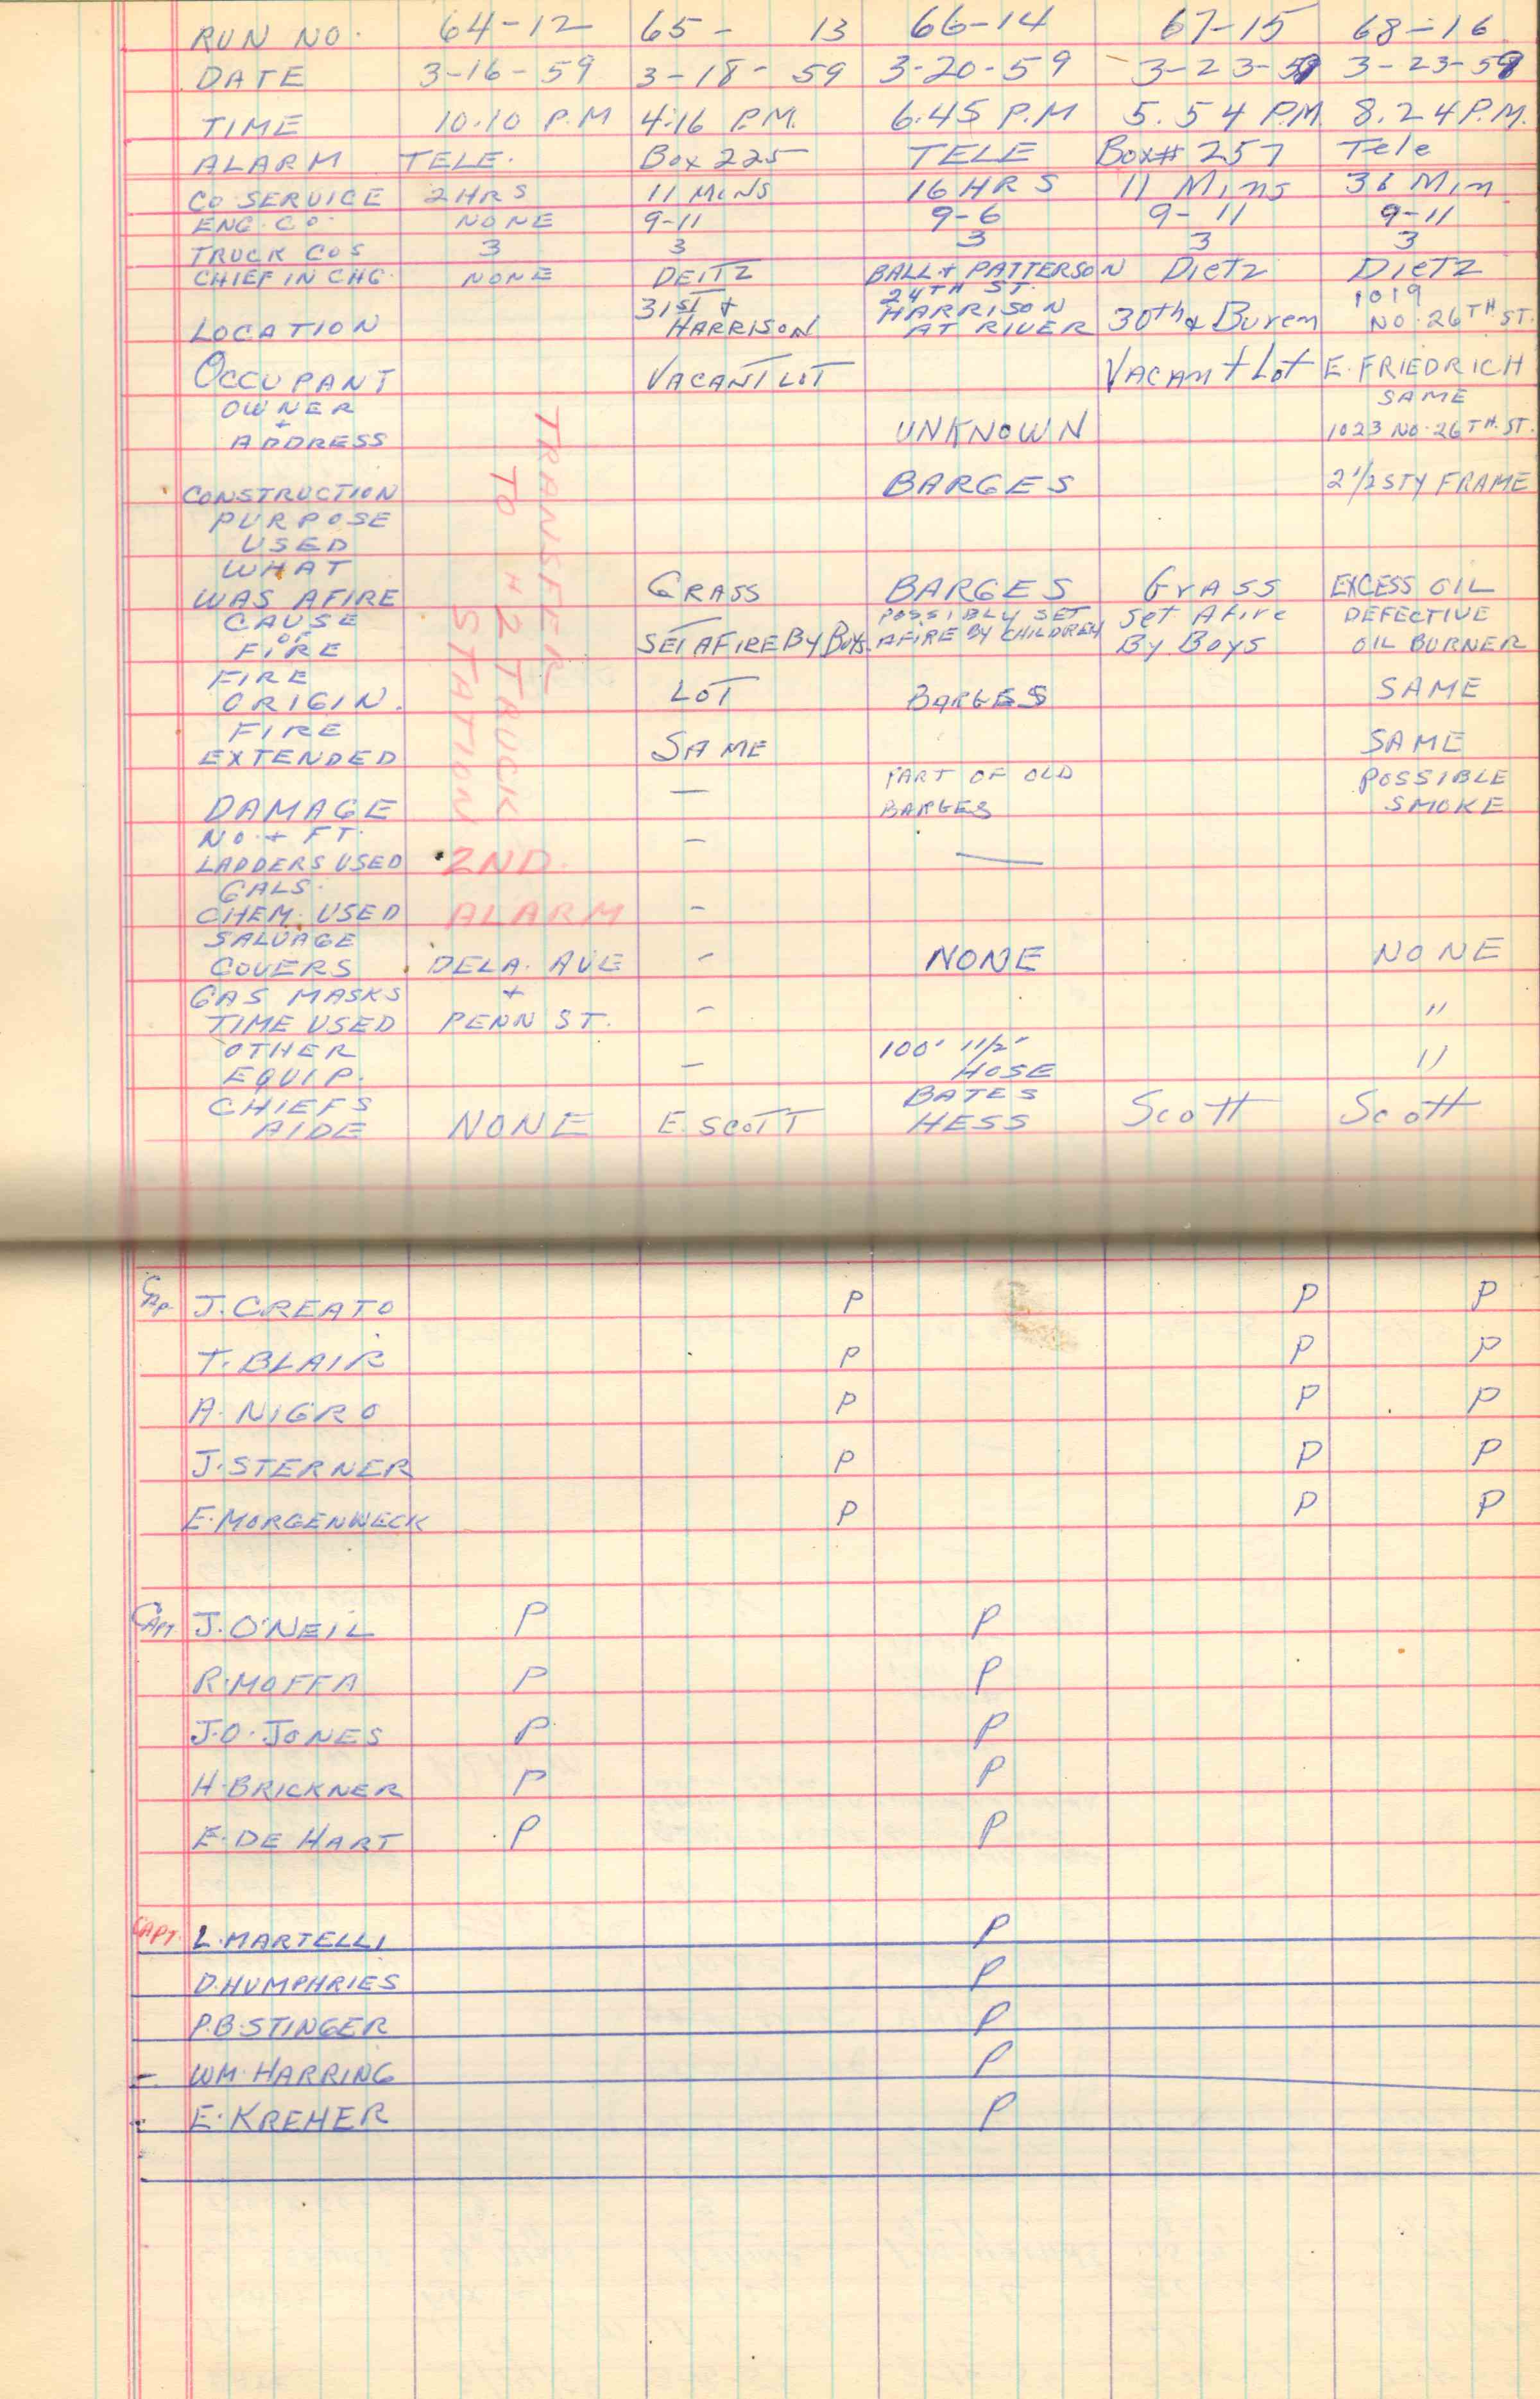 RUN NO. 64-12 65- 13 66-14 67-15 68-16
DATE 3-16-59 3-18-59 3-20-59 3-23-59 3-23-59
TIME 10.10 P.M 4:16 P.M. 6.45 P.M 5.54 P.M. 8.24 P.M.
ALARM TELE. Box 225 TELE Box# 257 Tele
CO SERVICE 2 HRS 11 MINS 16 HRS 11 Mins 36 Min
ENG. CO. NONE 9-11 9-6 9-11 9-11
TRUCK COS 3 3 3 3 3
CHIEF IN CHG. NONE DEITZ BALL + PATTERSON Dietz DIETZ
LOCATION 31ST + HARRISON 24TH ST. HARRISON AT RIVER 30th & Buren 1019 NO. 26TH ST.
OCCUPANT VACANT LOT VACANT Lot E. FRIEDRICH
OWNER SAME
+
ADDRESS UNKNOWN 1023 NO. 26TH. ST.
CONSTRUCTION BARGES 2 1/2 STY FRAME
PURPOSE
USED
WHAT
WAS AFIRE GRASS BARGES Grass EXCESS OIL
CAUSE POSSIBLY SET Set Afire DEFECTIVE
OF
FIRE SET AFIRE By Boys. AFIRE BY CHILDREN By Boys OIL BURNER
FIRE
ORIGIN. LOT BARGES SAME
FIRE
EXTENDED SAME SAME
PART OF OLD POSSIBLE
DAMAGE — BARGES SMOKE
NO. + FT. —
LADDERS USED 2ND. —
GALS.
CHEM. USED ALARM -
SALVAGE
COVERS DELA. AVE - NONE NONE
GAS MASKS +
TIME USED PENN ST. - "
OTHER 100' 1 1/2" "
EQUIP. — HOSE
CHIEFS BATES
AIDE NONE E. SCOTT HESS Scott Scott
TRANSFER
TO #2 TRUCK
STATION
Cap. J. CREATO P P P
T. BLAIR P P P
A. NIGRO P P P
J. STERNER P P P
E. MORGENWECK P P P
CAPT. J. O'NEIL P P
R. MOFFA P P
J.O. JONES P P
H. BRICKNER P P
E. DE HART P P
CAPT. L. MARTELLI P
D. HUMPHRIES P
P.B. STINGER P
WM. HARRING P
E. KREHER P